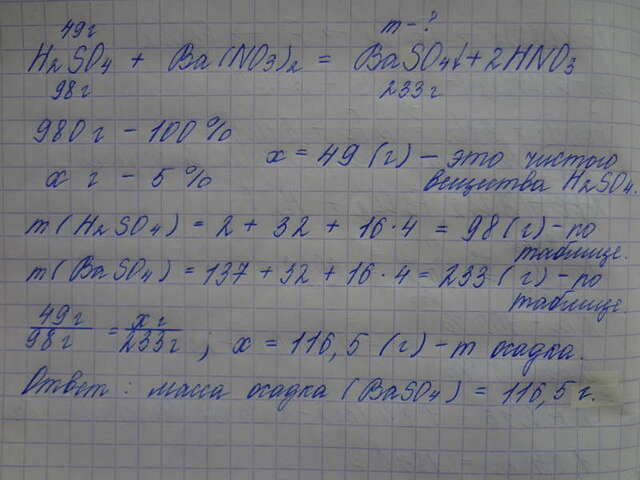 49г m-?
H2SO4 + Ba(NO3)2 = BaSO4↓+2HNO3
98г 233г
980г - 100%
x г - 5%
x = 49 (г) - это чистого вещества H2SO4.
m(H2SO4) = 2 + 32 + 16·4 = 98(г)-по таблице.
m(BaSO4) = 137+32+16·4=233(г)-по таблице.
49г/98г = x г/233г ; x = 116,5 (г) - m осадка.
Ответ: масса осадка (BaSO4) = 116,5 г.